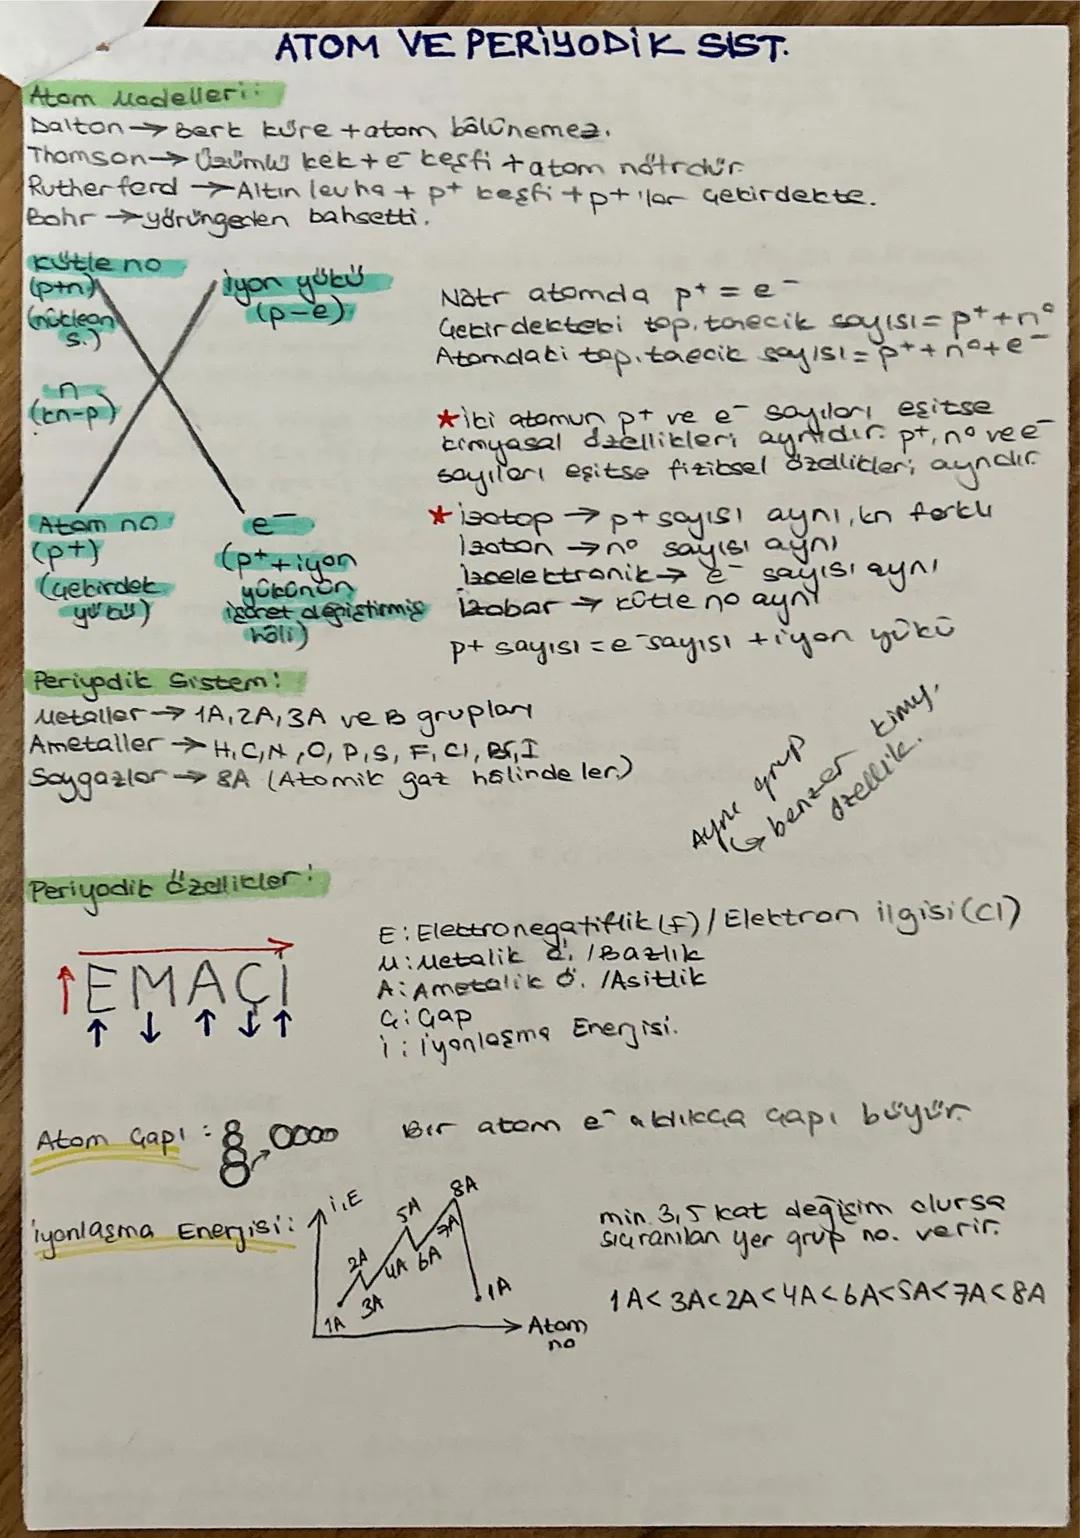 ATOM VE PERİYODİK SİST.
Atom Modelleri:
Dalton → Berk küre + atom bölünemez.
Thomson → Üzümlü kek + e⁻ keşfi + atom nötrdür
Rutherferd → Altın levha + p+ keşfi + p+'lar çekirdekte.
Bohr → yörüngeden bahsetti.
Kütle no
(p+n)
(nükleon
s.)
iyon yükü
(p-e)
n
(kn-p)
Atom no
(p+)
(Çekirdek
yükü)
e⁻
(p⁺+iyon
yükünün
işaret değiştirmiş
hâli)
Nötr atomda p⁺ = e⁻
Çekirdekteki top. tanecik sayısı = p⁺+n⁰
Atomdaki top. taecik sayısı = p⁺+n⁰+e⁻
★iki atomun p+ ve e⁻ sayıları eşitse
kimyasal özellikleri aynıdır. p+, n⁰ ve e⁻
sayıları eşitse fiziksel özellikleri aynıdır.
★ izotop → p+ sayısı aynı, kn farklı
izoton → n⁰ sayısı aynı
İzoelektronik → e⁻ sayısı aynı
İzobar → kütle no aynı
p+ sayısı = e⁻ sayısı + iyon yükü
Periyodik Sistem:
Metaller → 1A, 2A, 3A ve B grupları
Ametaller → H, C, N, O, P, S, F, Cl, Br, I
Soygazlar → 8A (Atomik gaz hâlindeler.)
Aynı grup
↳ benzer kimy.
özellik.
Periyodik Özellikler:
↑EMAÇİ
↑ ↓ ↑ ↓ ↑
E: Elektronegatiflik (F) / Elektron ilgisi (Cl)
M: Metalik ö. / Bazlık
A: Ametalik ö. / Asitlik
Ç: Çap
İ: İyonlaşma Enerjisi.
Atom Çapı:
Bir atom e⁻ aldıkça çapı büyür.
İyonlaşma Enerjisi:
İ.E
1A
2A
3A
4A
5A
6A
7A
8A
1A
Atom
no
min. 3,5 kat değişim olursa
sıçranılan yer grup no. verir.
1A < 3A < 2A < 4A < 6A < 5A < 7A < 8A